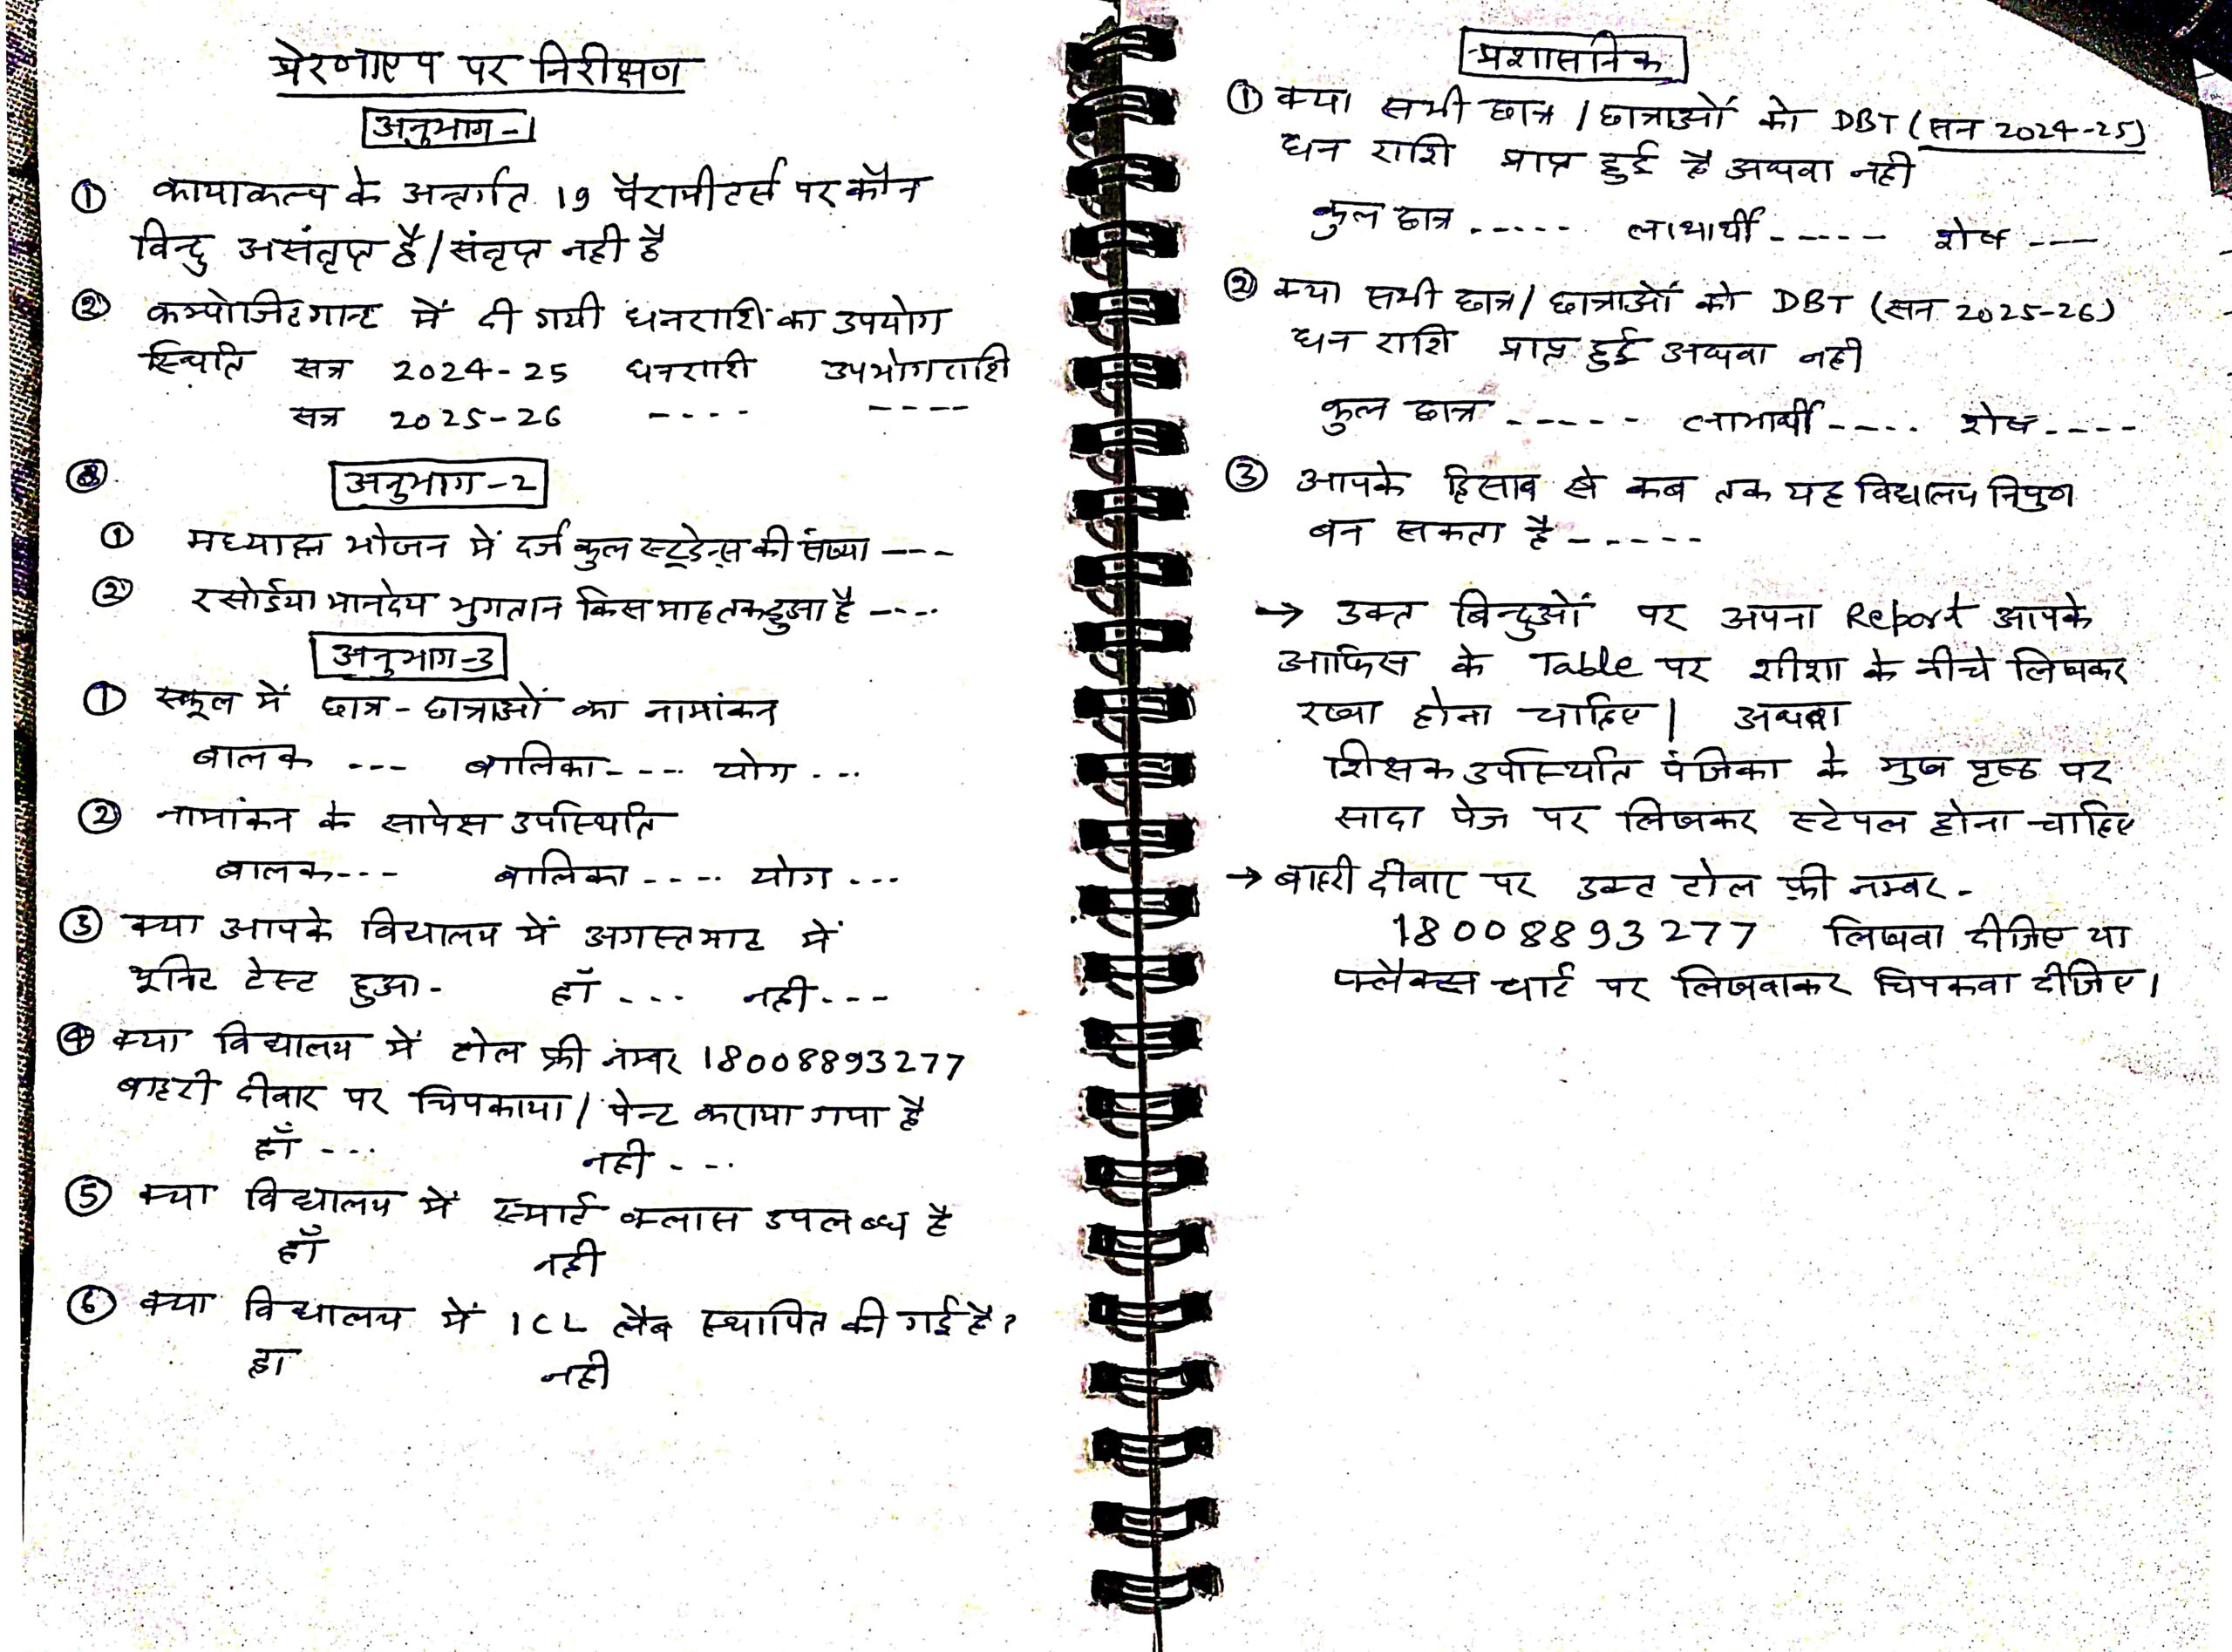 प्रेरणाएप पर निरीक्षण
अनुभाग-1
① कायाकल्प के अन्तर्गत 19 पैरामीटर्स पर कौन
विन्दु असंतृप्त है/संतृप्त नही है
② कम्पोजिटगान्ट में दी गयी धनराशि का उपयोग
स्थिति सत्र 2024-25 धनराशी उपभोगराशि
सत्र 2025-26 ---- ----
अनुभाग-2
① मध्याह्न भोजन में दर्ज कुल स्टूडेन्स की संख्या ---
② रसोईया मानदेय भुगतान किस माह तक हुआ है ----
अनुभाग-3
① स्कूल में छात्र-छात्राओं का नामांकन
बालक --- बालिका---- योग ---
② नामांकन के सापेक्ष उपस्थिति
बालक--- बालिका---- योग ---
③ क्या आपके विद्यालय में अगस्त माह में
यूनिट टेस्ट हुआ- हाँ --- नही---
④ क्या विद्यालय में टोल फ्री नम्बर 18008893277
बाहरी दीवार पर चिपकाया/पेन्ट कराया गया है
हाँ --- नही ---
⑤ क्या विद्यालय में स्मार्ट क्लास उपलब्ध है
हाँ नही
⑥ क्या विद्यालय में ICL लैब स्थापित की गई है?
हा नही
प्रशासनिक
① क्या सभी छात्र/छात्राओं को DBT (सन 2024-25)
धन राशि प्राप्त हुई है अथवा नही
कुल छात्र ----- लाभार्थी ----- शेष ---
② क्या सभी छात्र/छात्राओं को DBT (सन 2025-26)
धन राशि प्राप्त हुई अथवा नही
कुल छात्र ----- लाभार्थी---- शेष----
③ आपके हिसाब से कब तक यह विद्यालय निपुण
बन सकता है -----
→ उक्त बिन्दुओं पर अपना Report आपके
आफिस के Table पर शीशा के नीचे लिखकर
रखा होना चाहिए। अथवा
शिक्षक उपस्थिति पंजिका के मुख पृष्ठ पर
सादा पेज पर लिखकर स्टेपल होना चाहिए
→ बाहरी दीवार पर उक्ट टोल फ्री नम्बर-
18008893277 लिखवा दीजिए या
फ्लैक्स चार्ट पर लिखवाकर चिपकवा दीजिए।